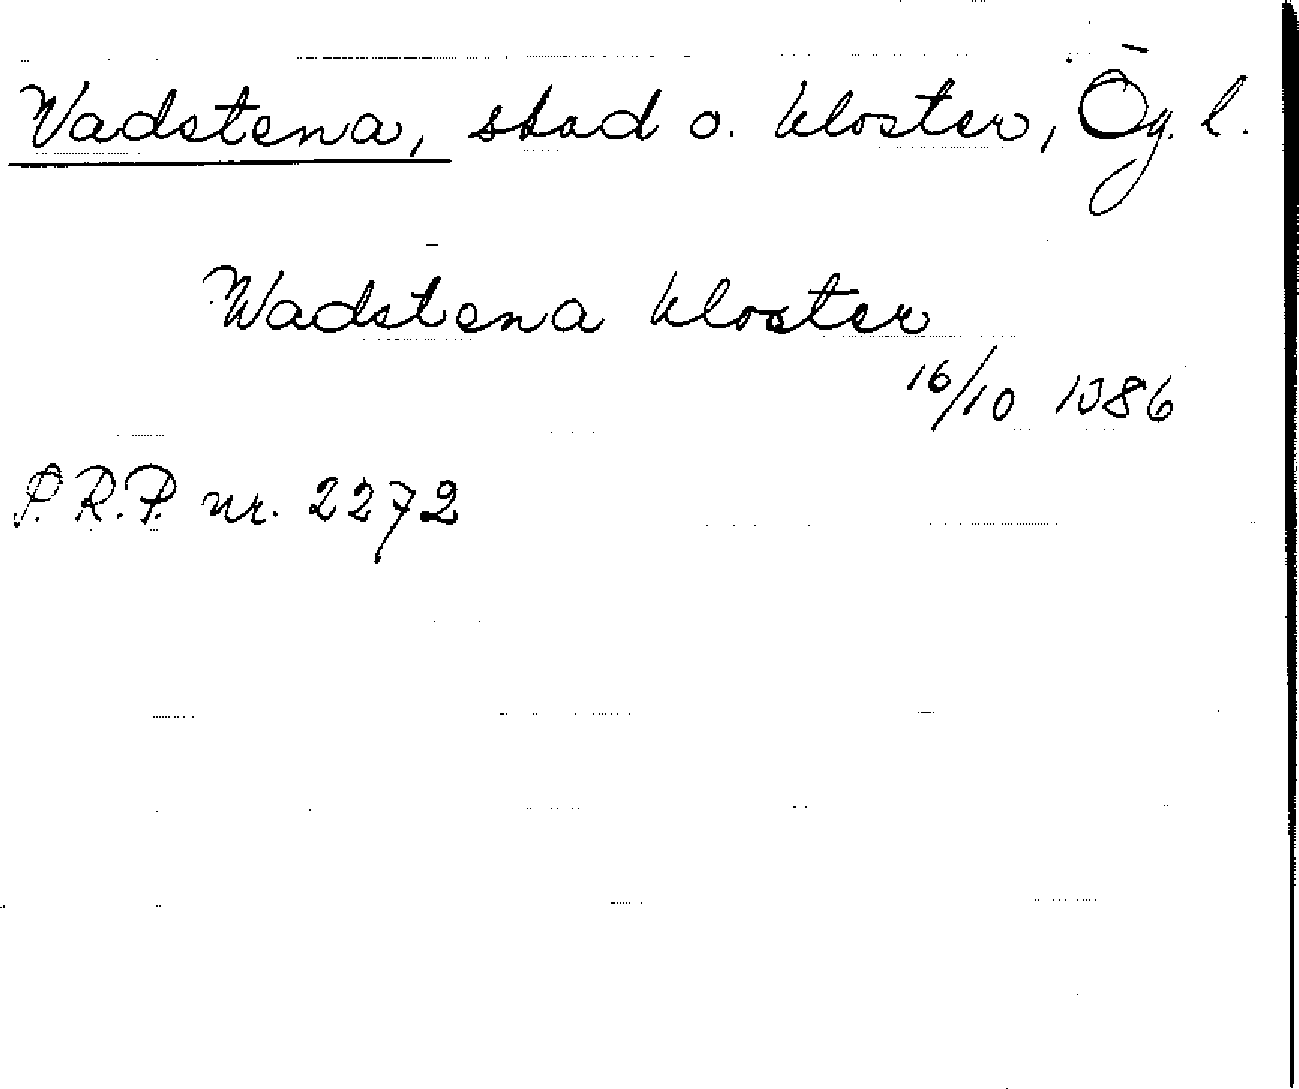 Vadstena, stad o. kloster, Ög. l.
Wadstena kloster
16/10 1386
P.R.P. nr. 2272